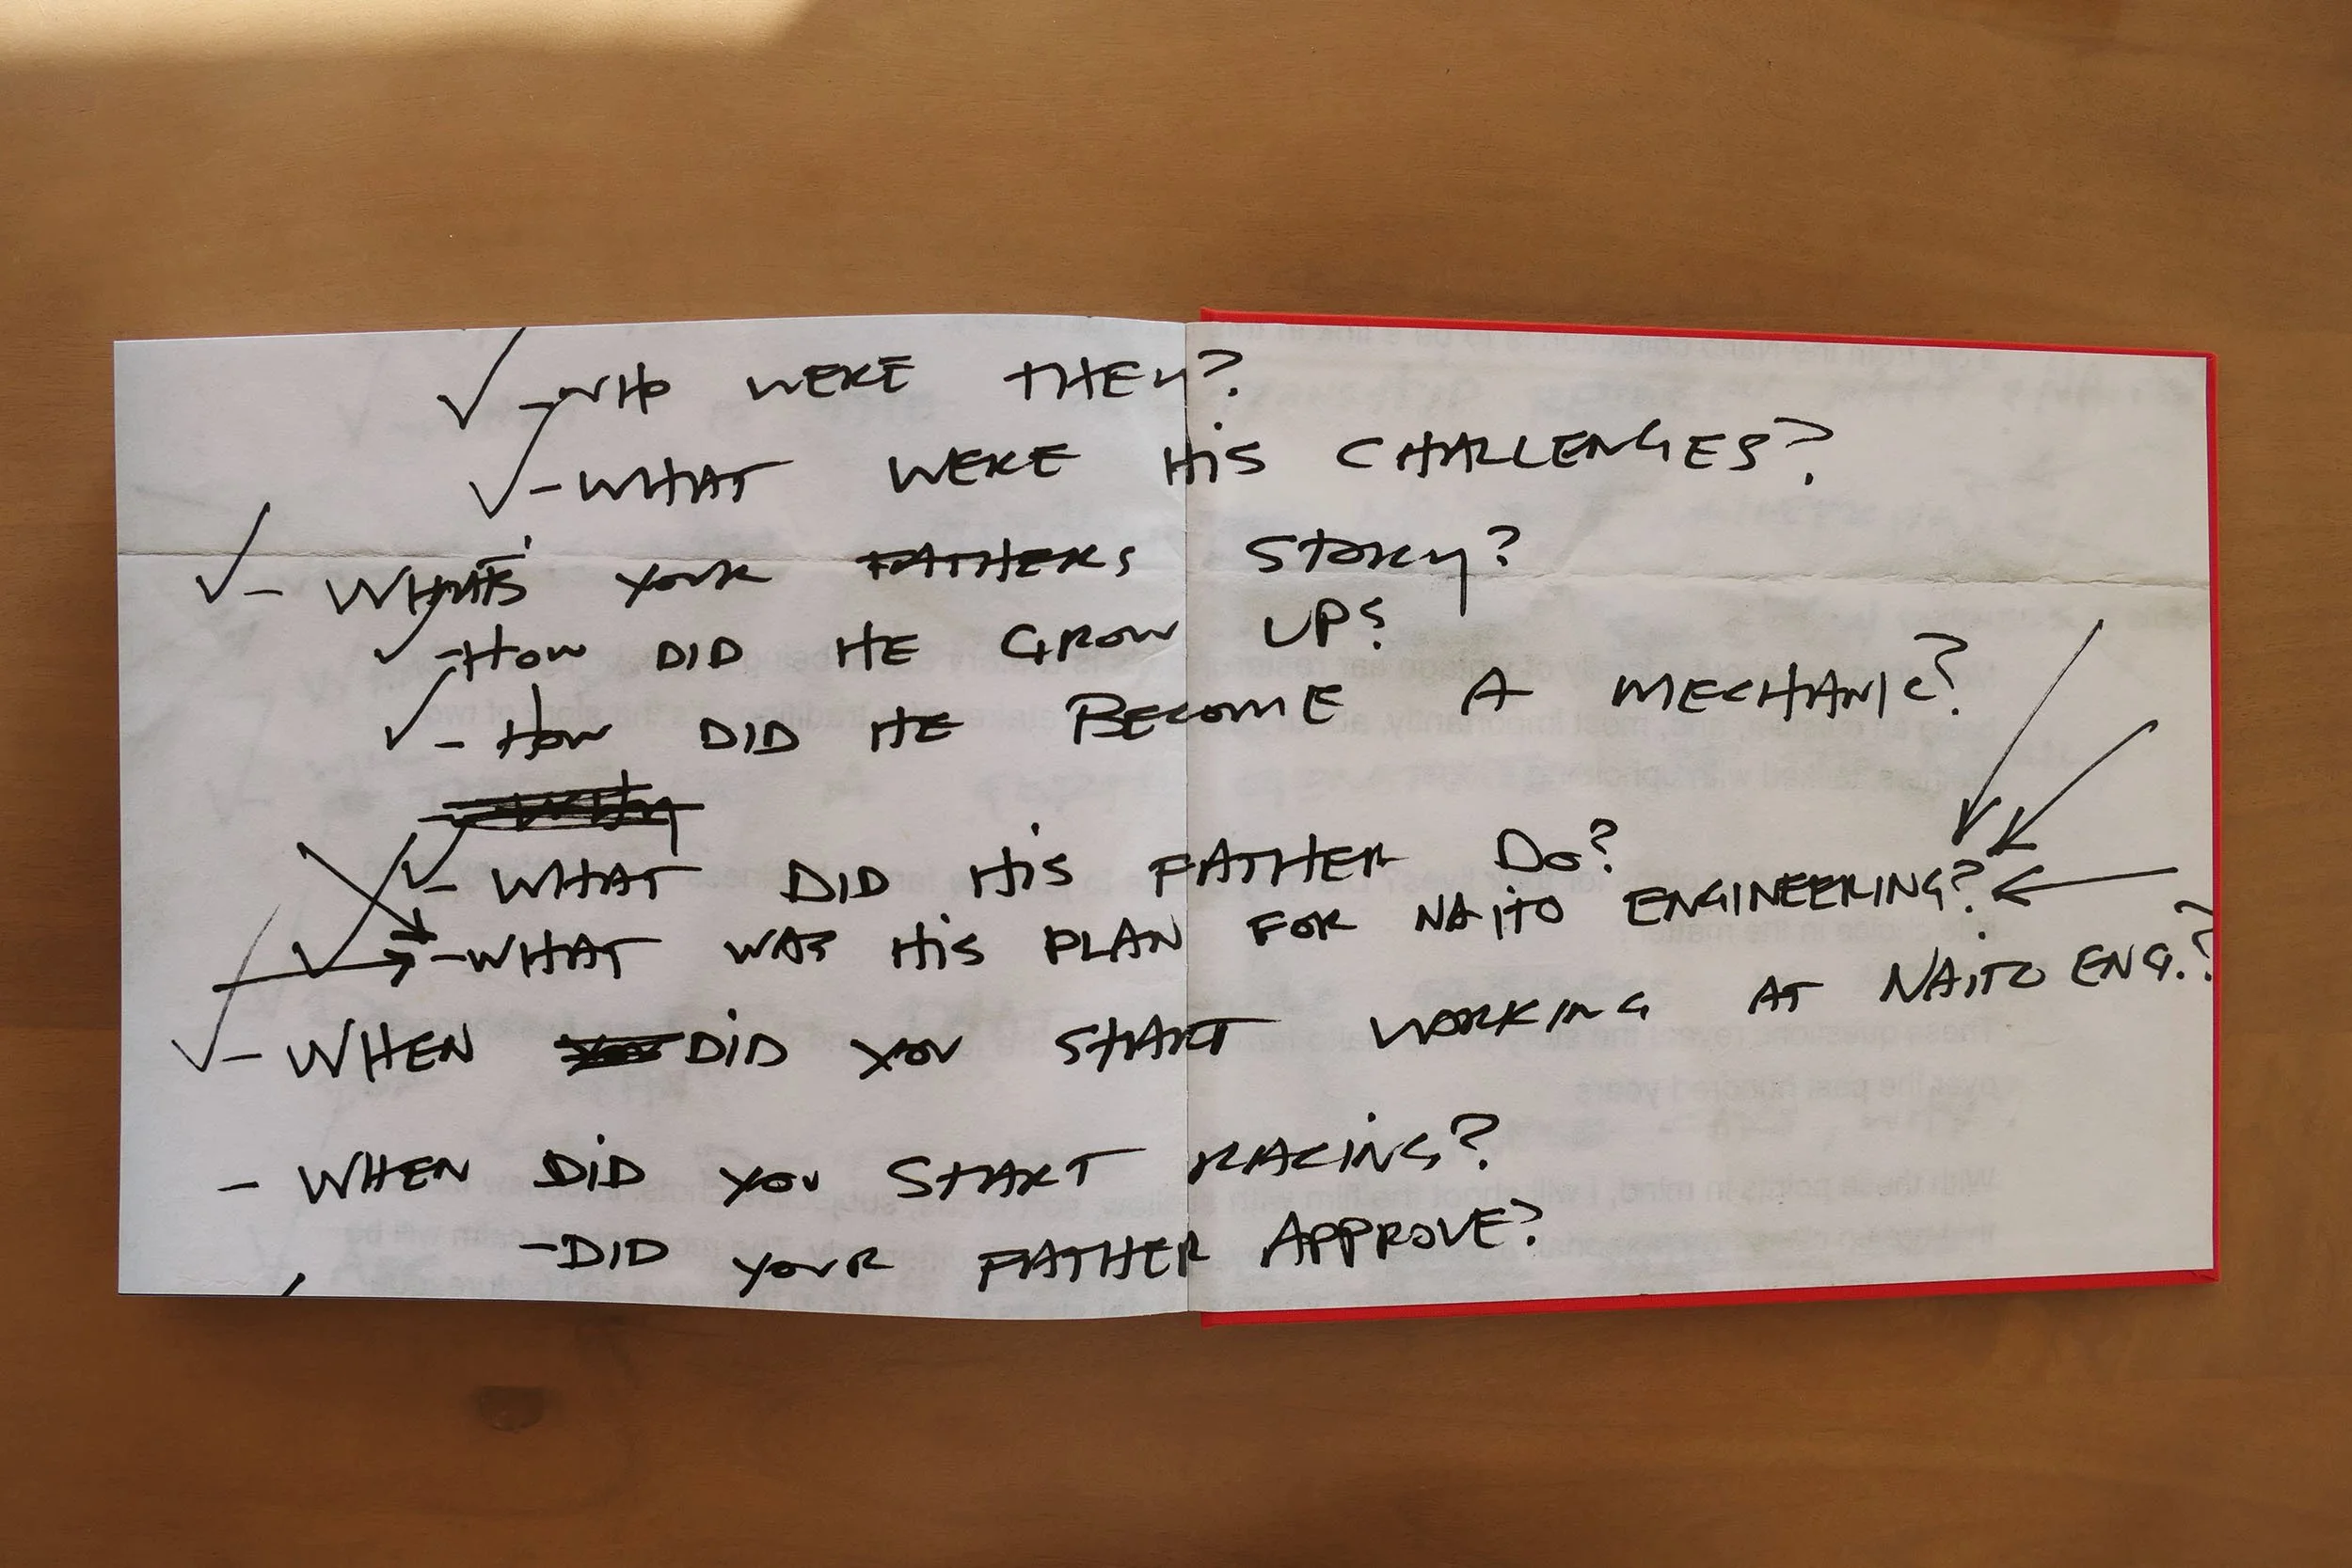 - WHO WERE THEY?
- WHAT WERE HIS CHALLENGES?
- WHAT'S YOUR FATHERS STORY?
- HOW DID HE GROW UP?
- HOW DID HE BECOME A MECHANIC?
- WHAT DID HIS FATHER DO?
- WHAT WAS HIS PLAN FOR NAITO ENGINEERING?
- WHEN DID YOU START WORKING AT NAITO ENG.?
- WHEN DID YOU START RACING?
- DID YOUR FATHER APPROVE?